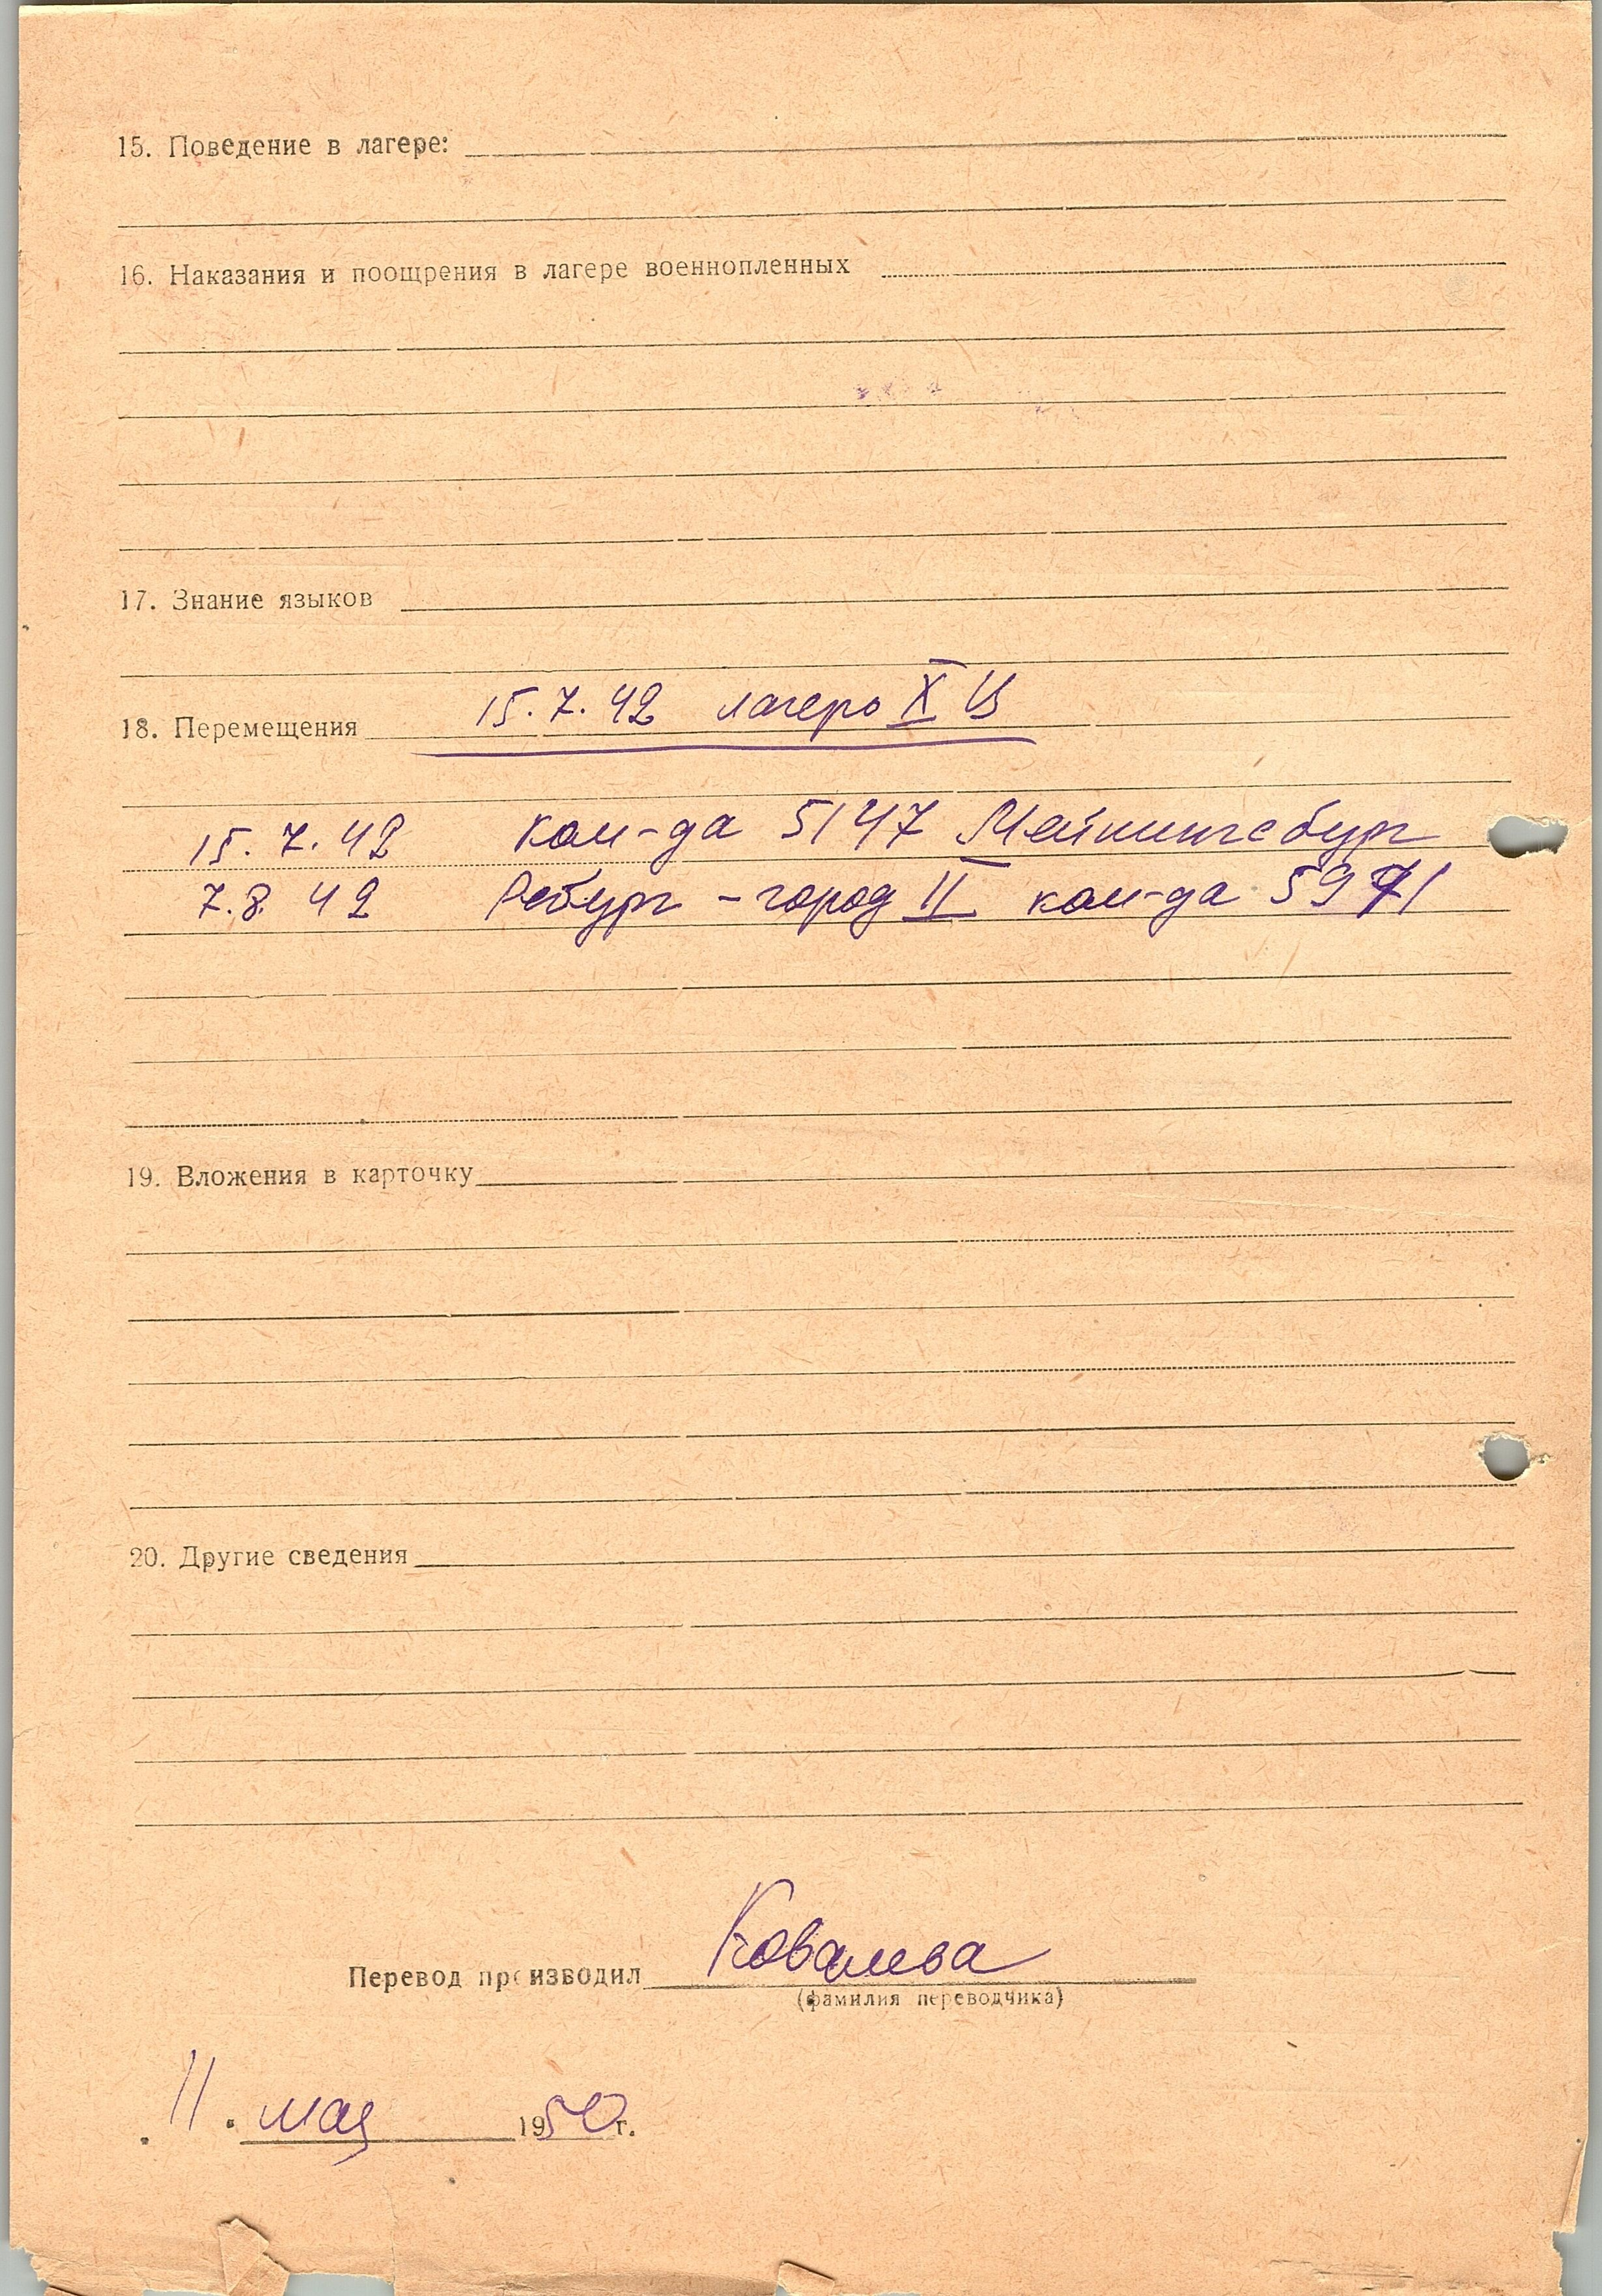 15. Поведение в лагере:
16. Наказания и поощрения в лагере военнопленных
17. Знание языков
18. Перемещения 15.7.42 лагерь X Ц
15.7.42 ком-да 5147 Мейнингсбург
7.8.42 Ребург - город II ком-да 5971
19. Вложения в карточку
20. Другие сведения
Перевод производил Ковалева
(фамилия переводчика)
11. мая 1950 г.